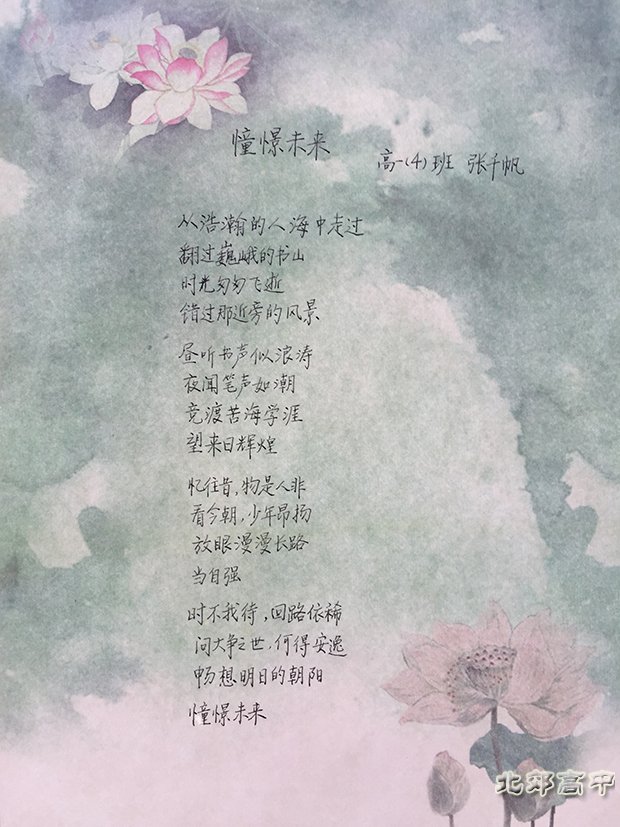 憧憬未来
高一(4)班 张千帆
从浩瀚的人海中走过
翻过巍峨的书山
时光匆匆飞逝
错过那近旁的风景
昼听书声似浪涛
夜闻笔声如潮
竞渡苦海学涯
望来日辉煌
忆往昔,物是人非
看今朝,少年昂扬
放眼漫漫长路
当自强
时不我待,回路依稀
问大争之世,何得安逸
畅想明日的朝阳
憧憬未来
北郊高中